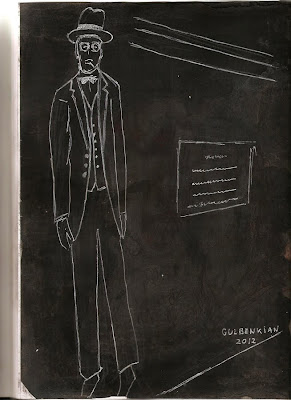 GULBENKIAN
2012